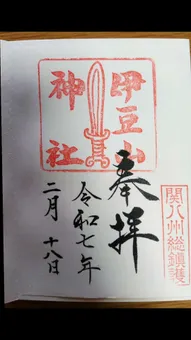 伊豆山
神社
奉拝
令和七年
二月 十八日
関八州総鎮護